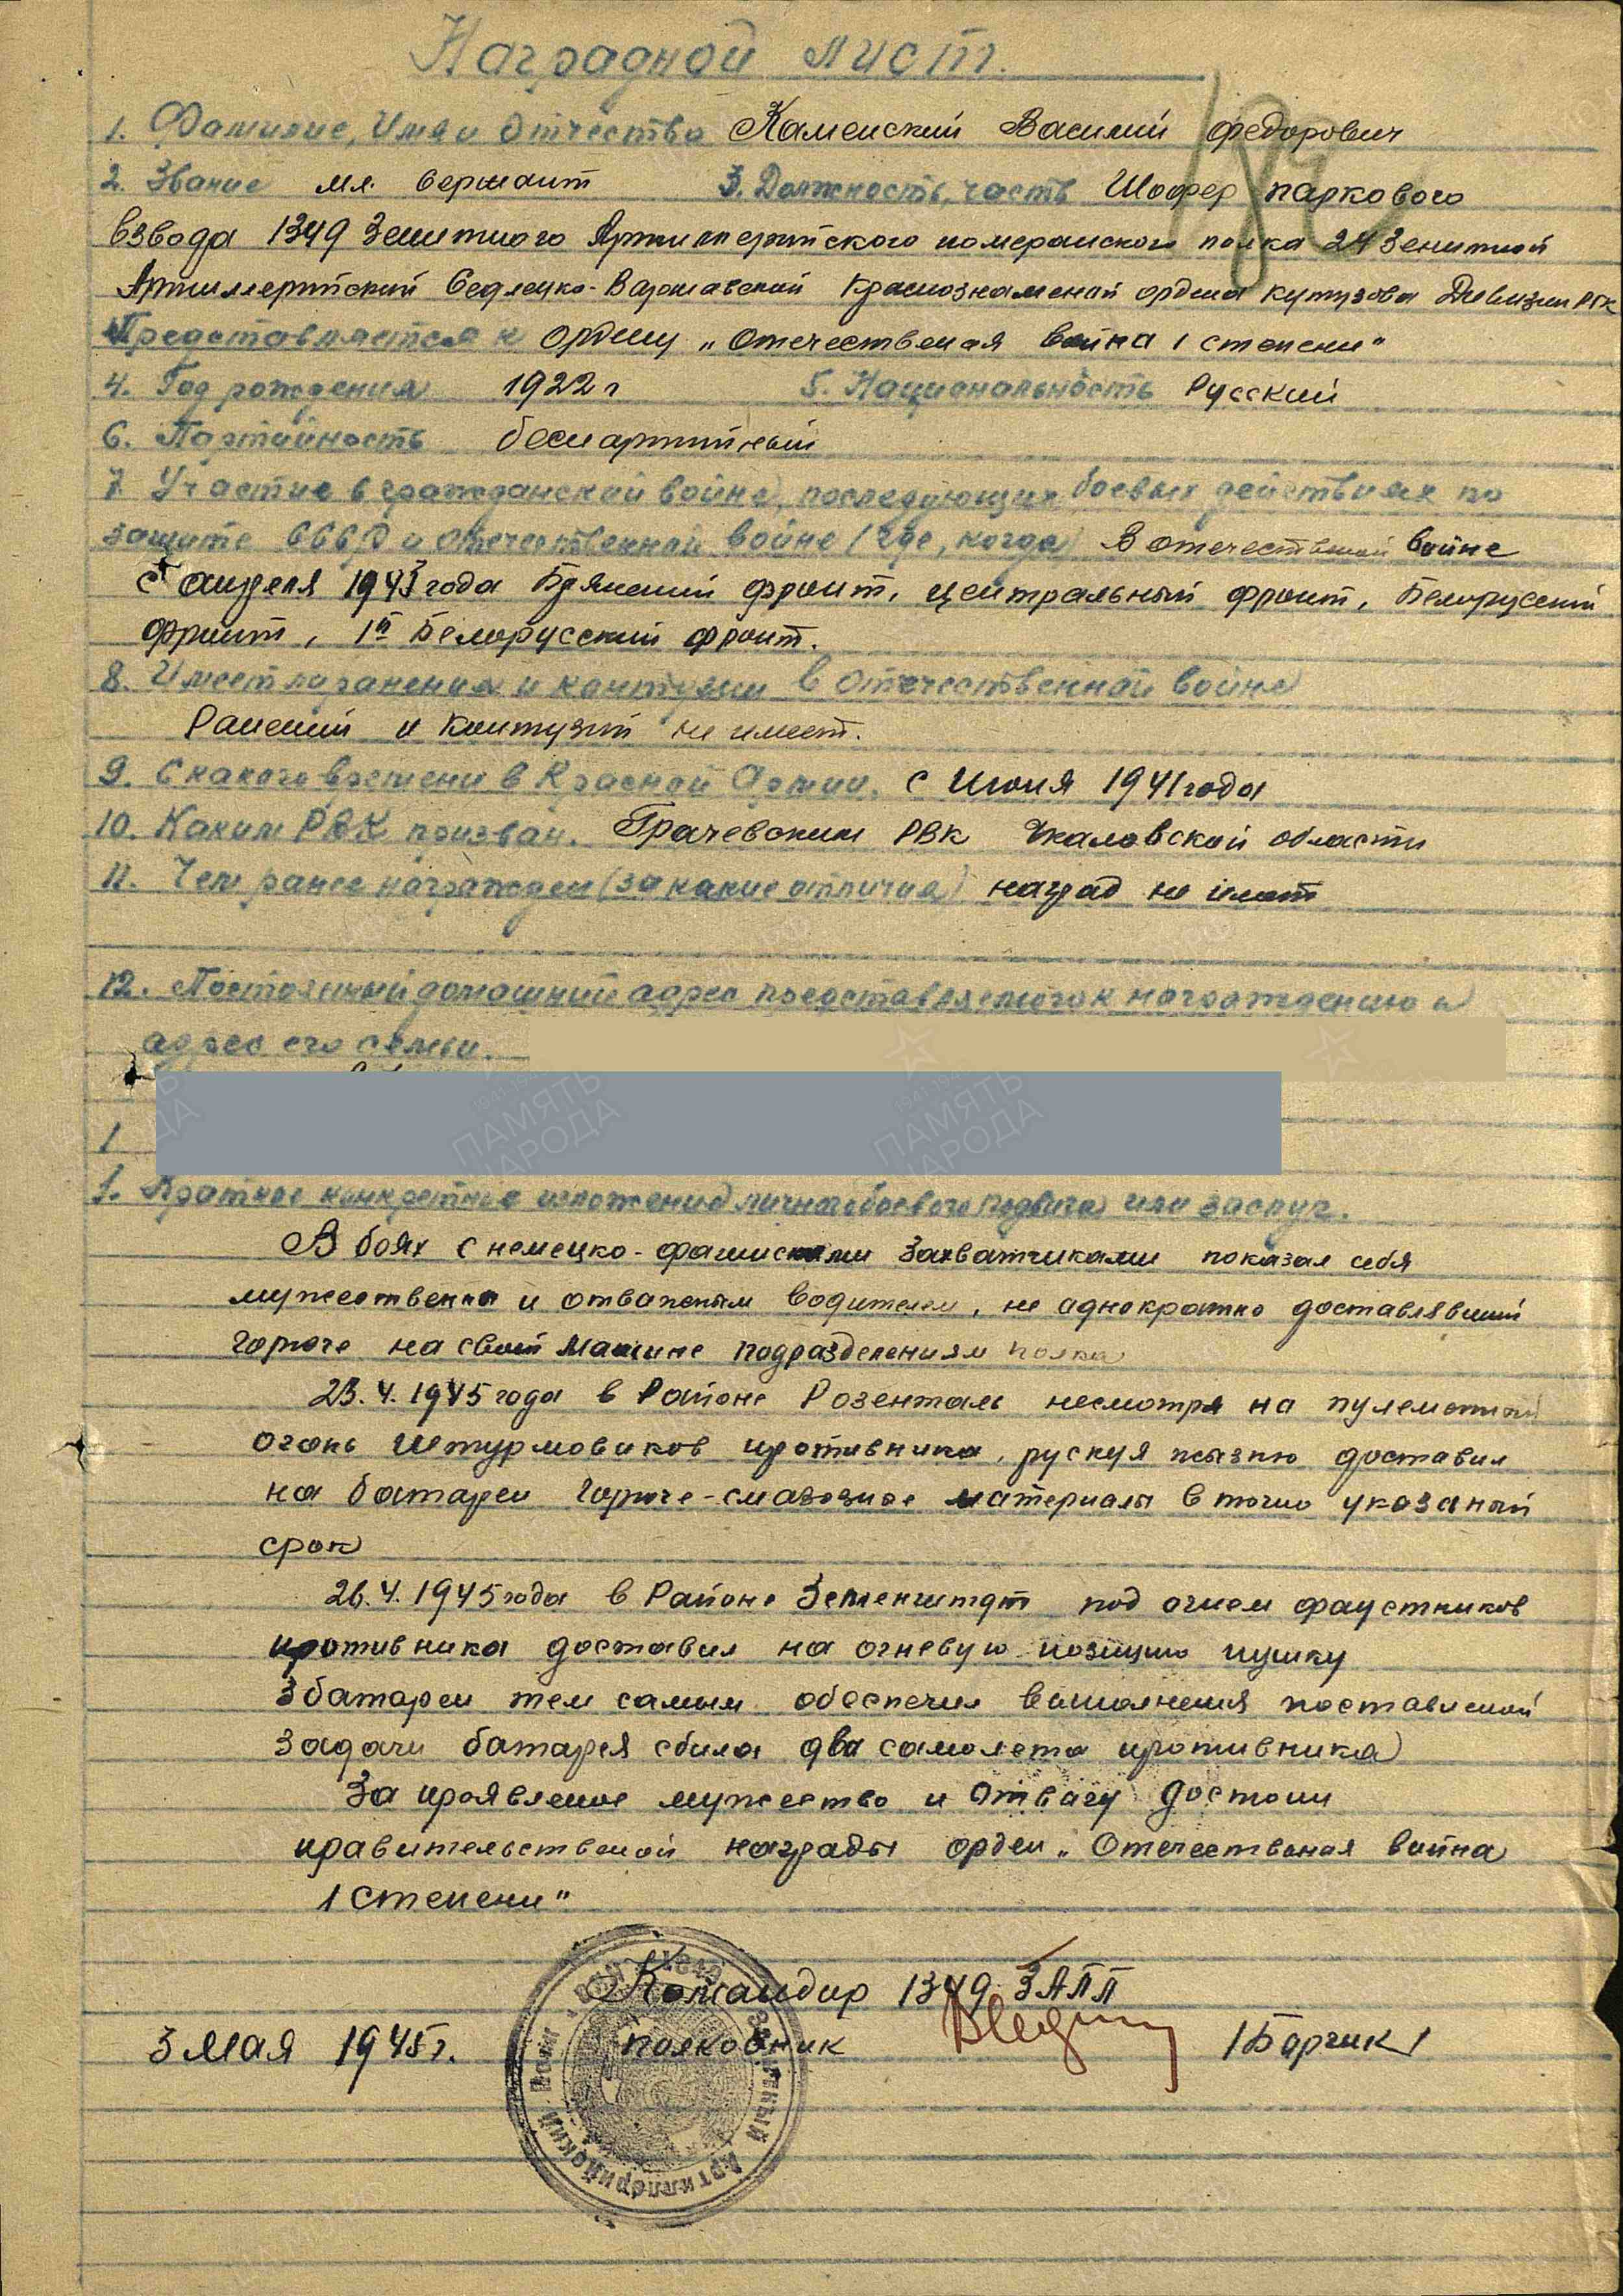 Наградной лист.
1. Фамилие, Имя и Отчество Каменский Василий Федорович
2. Звание мл. Сержант 3. Должность, часть Шофер паркового
взвода 1349 Зенитного Артиллерийского померанского полка 24 Зенитной
Артиллерийский Седлецко-Варшавской Краснознаменой ордена кутузова Дивизии РГК
Представляется к ордену „Отечественая война 1 степени"
4. Год рождения 1922 г 5. Национальность Русский
6. Партийность беспартийный
7. Участие в гражданской войне, последующих боевых действиях по
защите СССР и отечественной войне (где, когда) В отечественой войне
с апреля 1943 года Брянский фронт, центральный фронт, Белорусский
фронт, 1й Белорусский фронт.
8. Имеет ли ранения и контузии в отечественной войне
Ранений и контузий не имеет.
9. С какого времени в Красной Армии. с Июня 1941 года
10. Каким РВК призван. Грачевским РВК Чкаловской области
11. Чем ранее награжден (за какие отличия) наград не имеет
12. Постоянный домашний адрес представляемого к награждению и
адрес его семьи.
1
1. Краткое конкретное изложение личного боевого подвига или заслуг.
В боях с немецко-фашискими захватчиками показал себя
мужественна и отважным водителем, не однократно доставлявший
горюче на своей Машине подразделениям полка
23.4.1945 года в Районе Розенталь несмотря на пулеметный
огонь Штурмовиков противника, рускуя жызню доставил
на батареи Горюче-смазозное материалы в точно указаный
срок
26.4.1945 года в Районе под огнем фаустников
противника доставил на огневую позицию пушку
3 батареи тем самым обеспечил выполнения поставленой
задачи батарея сбила два самолета противника
За проявленое мужество и отвагу достоин
правительственой награды орден „Отечественая война
1 степени"
Командир 1349 ЗАПП
3 Мая 1945 г. полковник /Борчик/
Зенитный Артиллерийский Полк 1349
182
ПАМЯТЬ НАРОДА